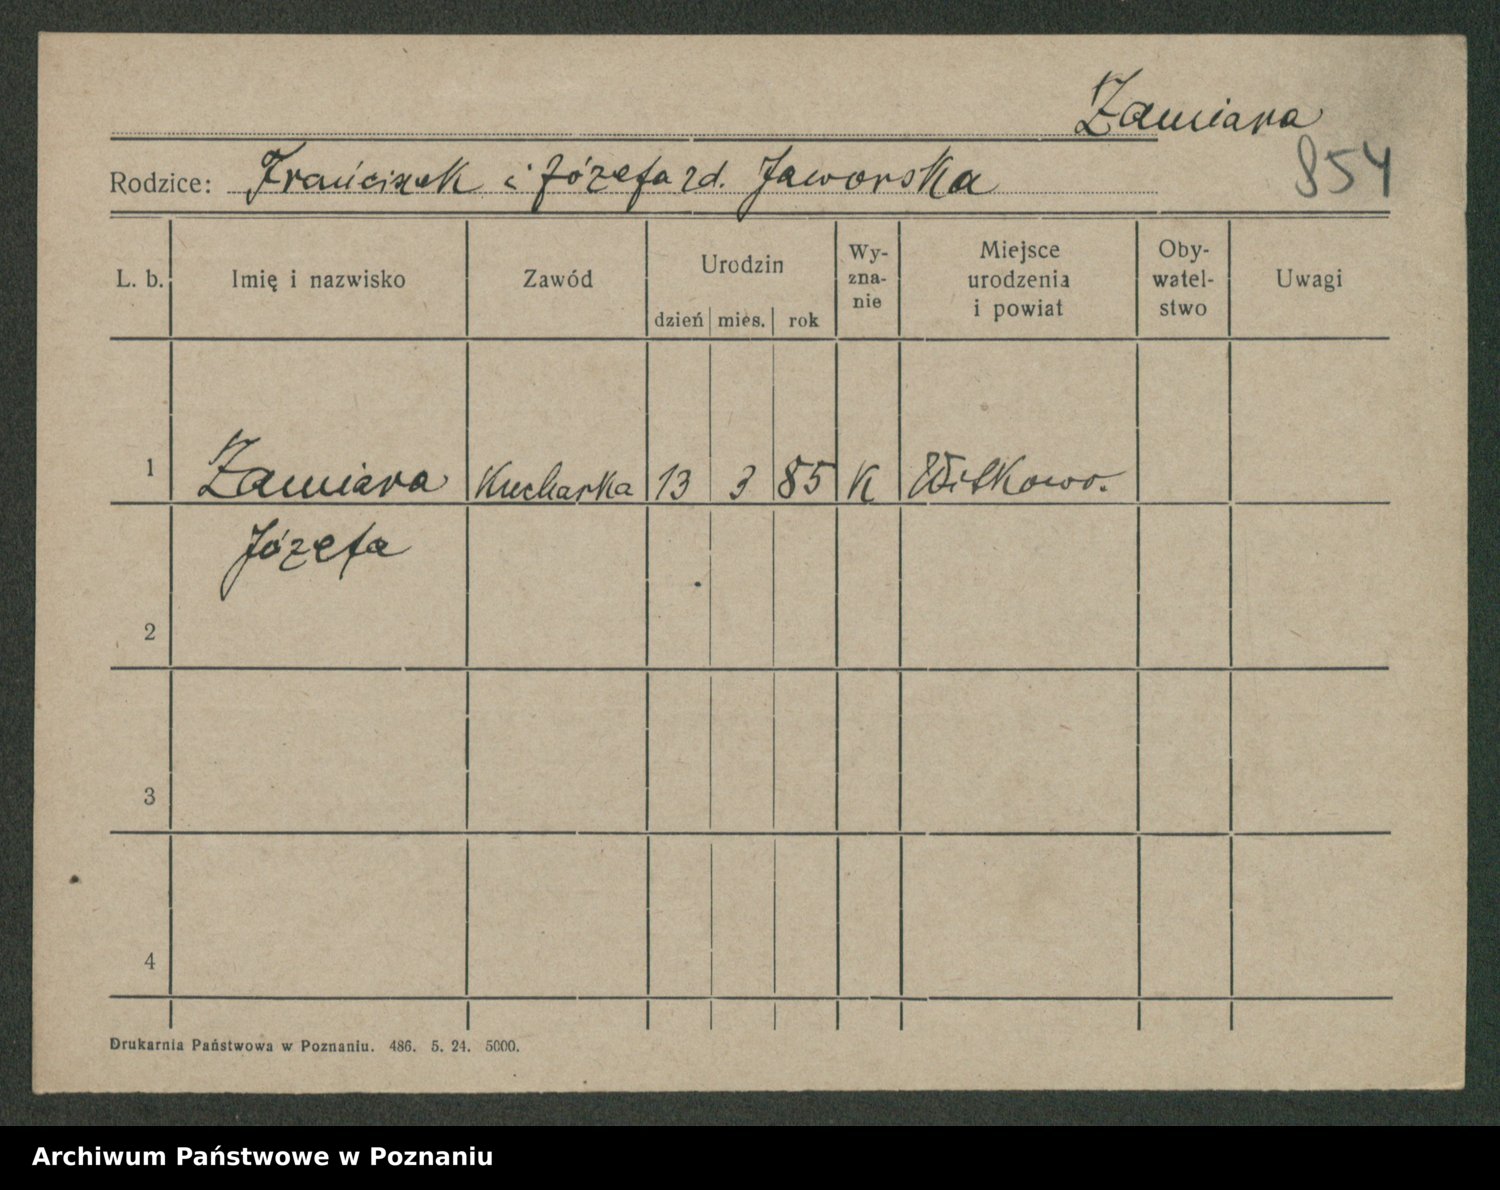 Zamiara
854
Rodzice: Franciszek i Józefa zd. Jaworska
L. b. Imię i nazwisko Zawód Urodzin dzień mies. rok Wy-zna-nie Miejsce urodzenia i powiat Oby-watel-stwo Uwagi
1 Zamiara Kucharka 13 3 85 K Witkowo.
Józefa
2
3
4
Drukarnia Państwowa w Poznaniu. 486. 5. 24. 5000.
Archiwum Państwowe w Poznaniu